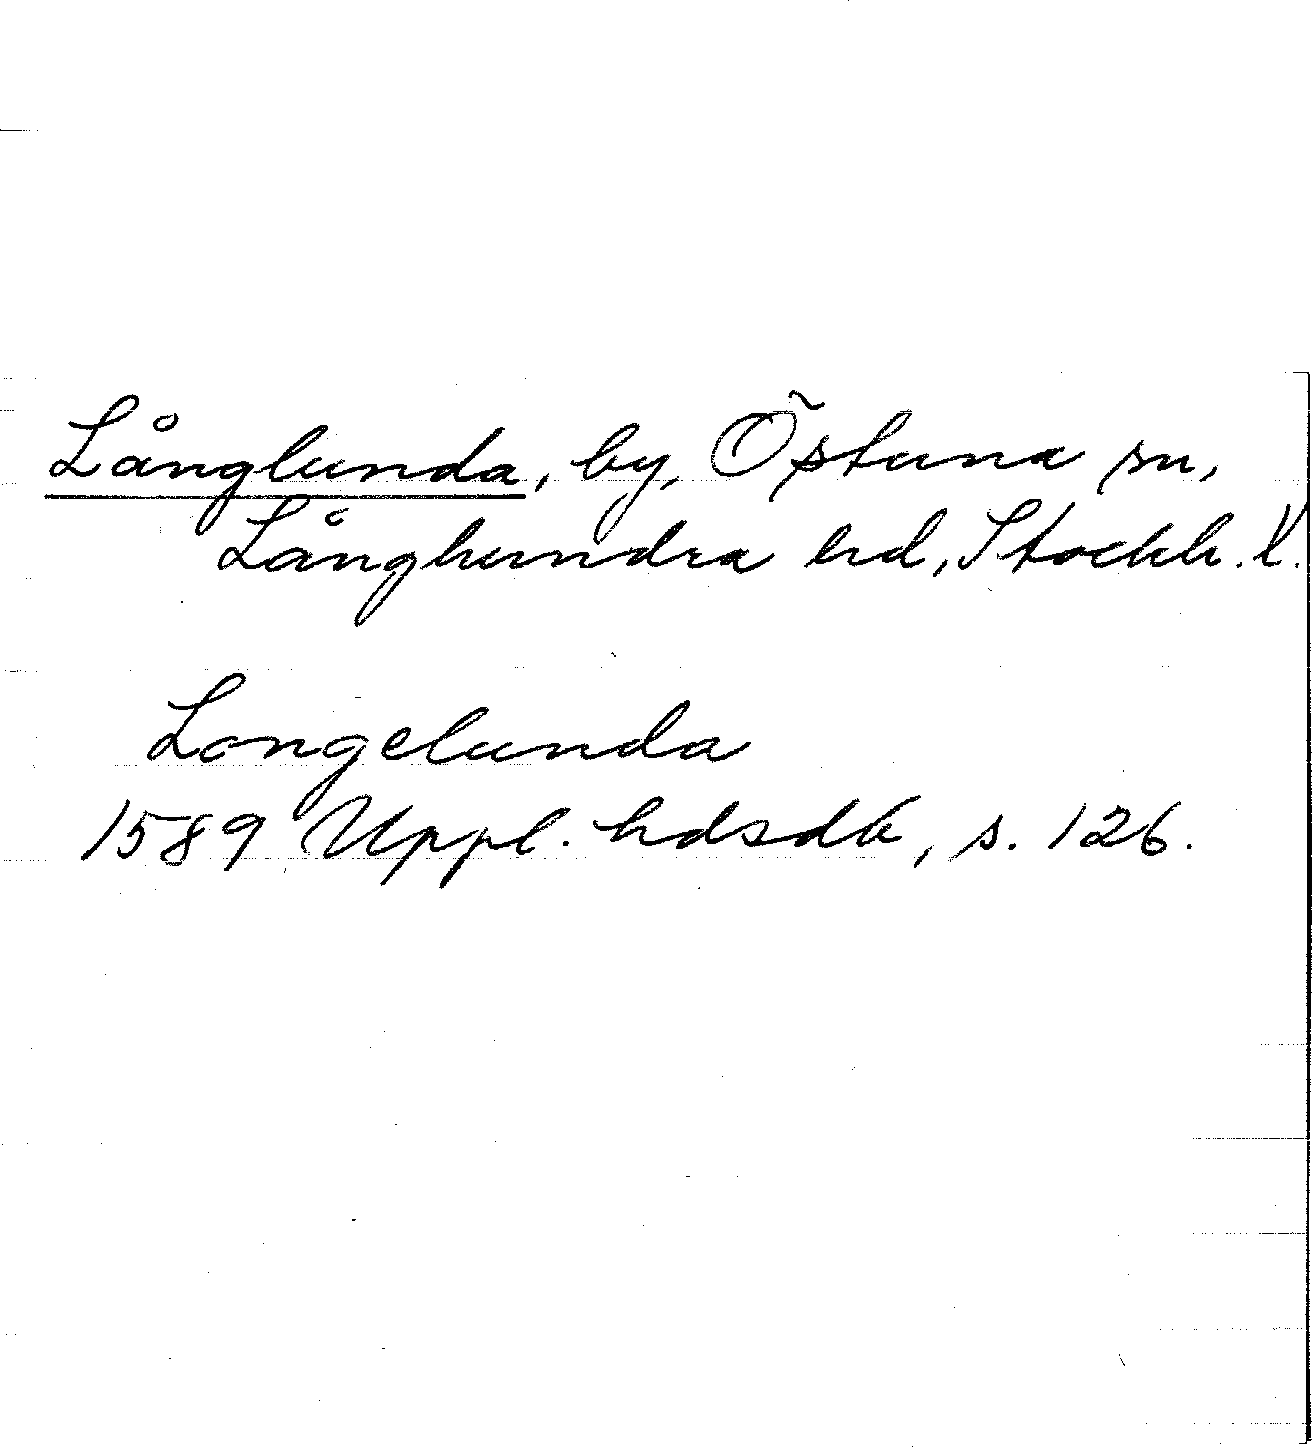 Långlunda, by, Östuna sn,
Långhundra hd, Stockh. l.
Longelunda
1589 Uppl. hdsdb, s. 126.